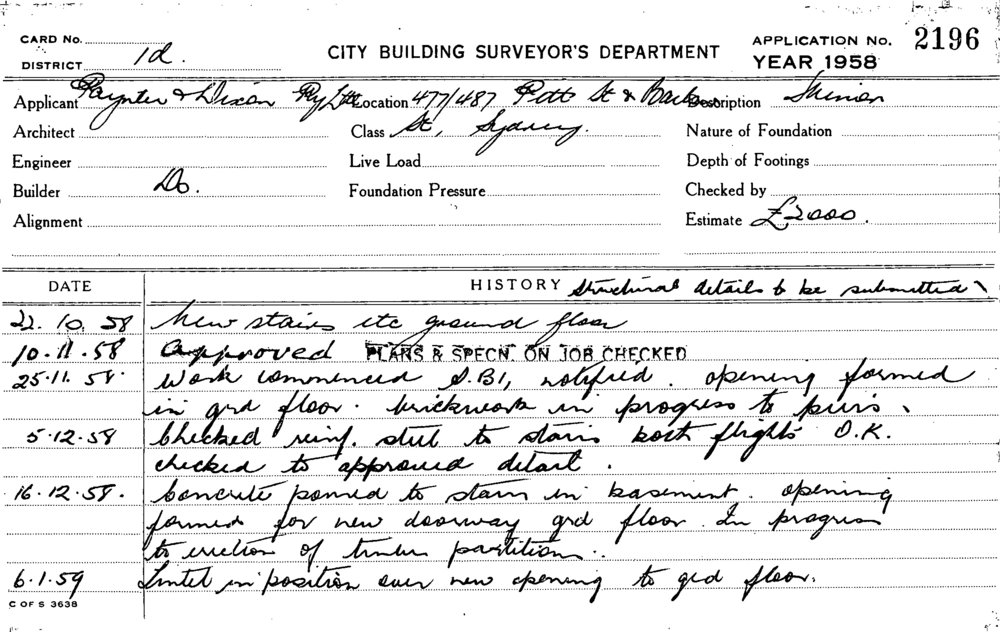 CARD No.
DISTRICT 1d.
CITY BUILDING SURVEYOR'S DEPARTMENT
APPLICATION No. 2196
YEAR 1958
Applicant Paynter & Dixon Pty Ltd Location 477/487 Pitt St & Barlow Description Minor
Architect Class St, Sydney. Nature of Foundation
Engineer Live Load Depth of Footings
Builder Do. Foundation Pressure Checked by
Alignment Estimate £2000.
DATE HISTORY Structural details to be submitted
22.10.58 New stairs etc ground floor
10.11.58 Approved PLANS & SPECN. ON JOB CHECKED
25.11.58. Work commenced notified. opening formed
in grd floor. brickwork in progress to piers.
5.12.58 Checked reinf. steel to stairs both flights O.K.
checked to approved detail.
16.12.58. Concrete poured to stairs in basement. opening
formed for new doorway grd floor. In progress
to erection of timber partitions.
6.1.59 Lintel in position over new opening to grd floor.
C OF S 3638